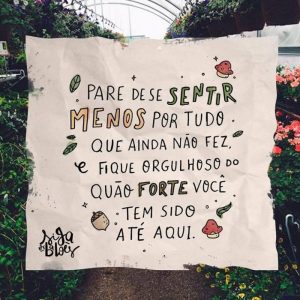 PARE DE SE SENTIR
MENOS POR TUDO
QUE AINDA NÃO FEZ,
E FIQUE ORGULHOSO DO
QUÃO FORTE VOCÊ
TEM SIDO
ATÉ AQUI.